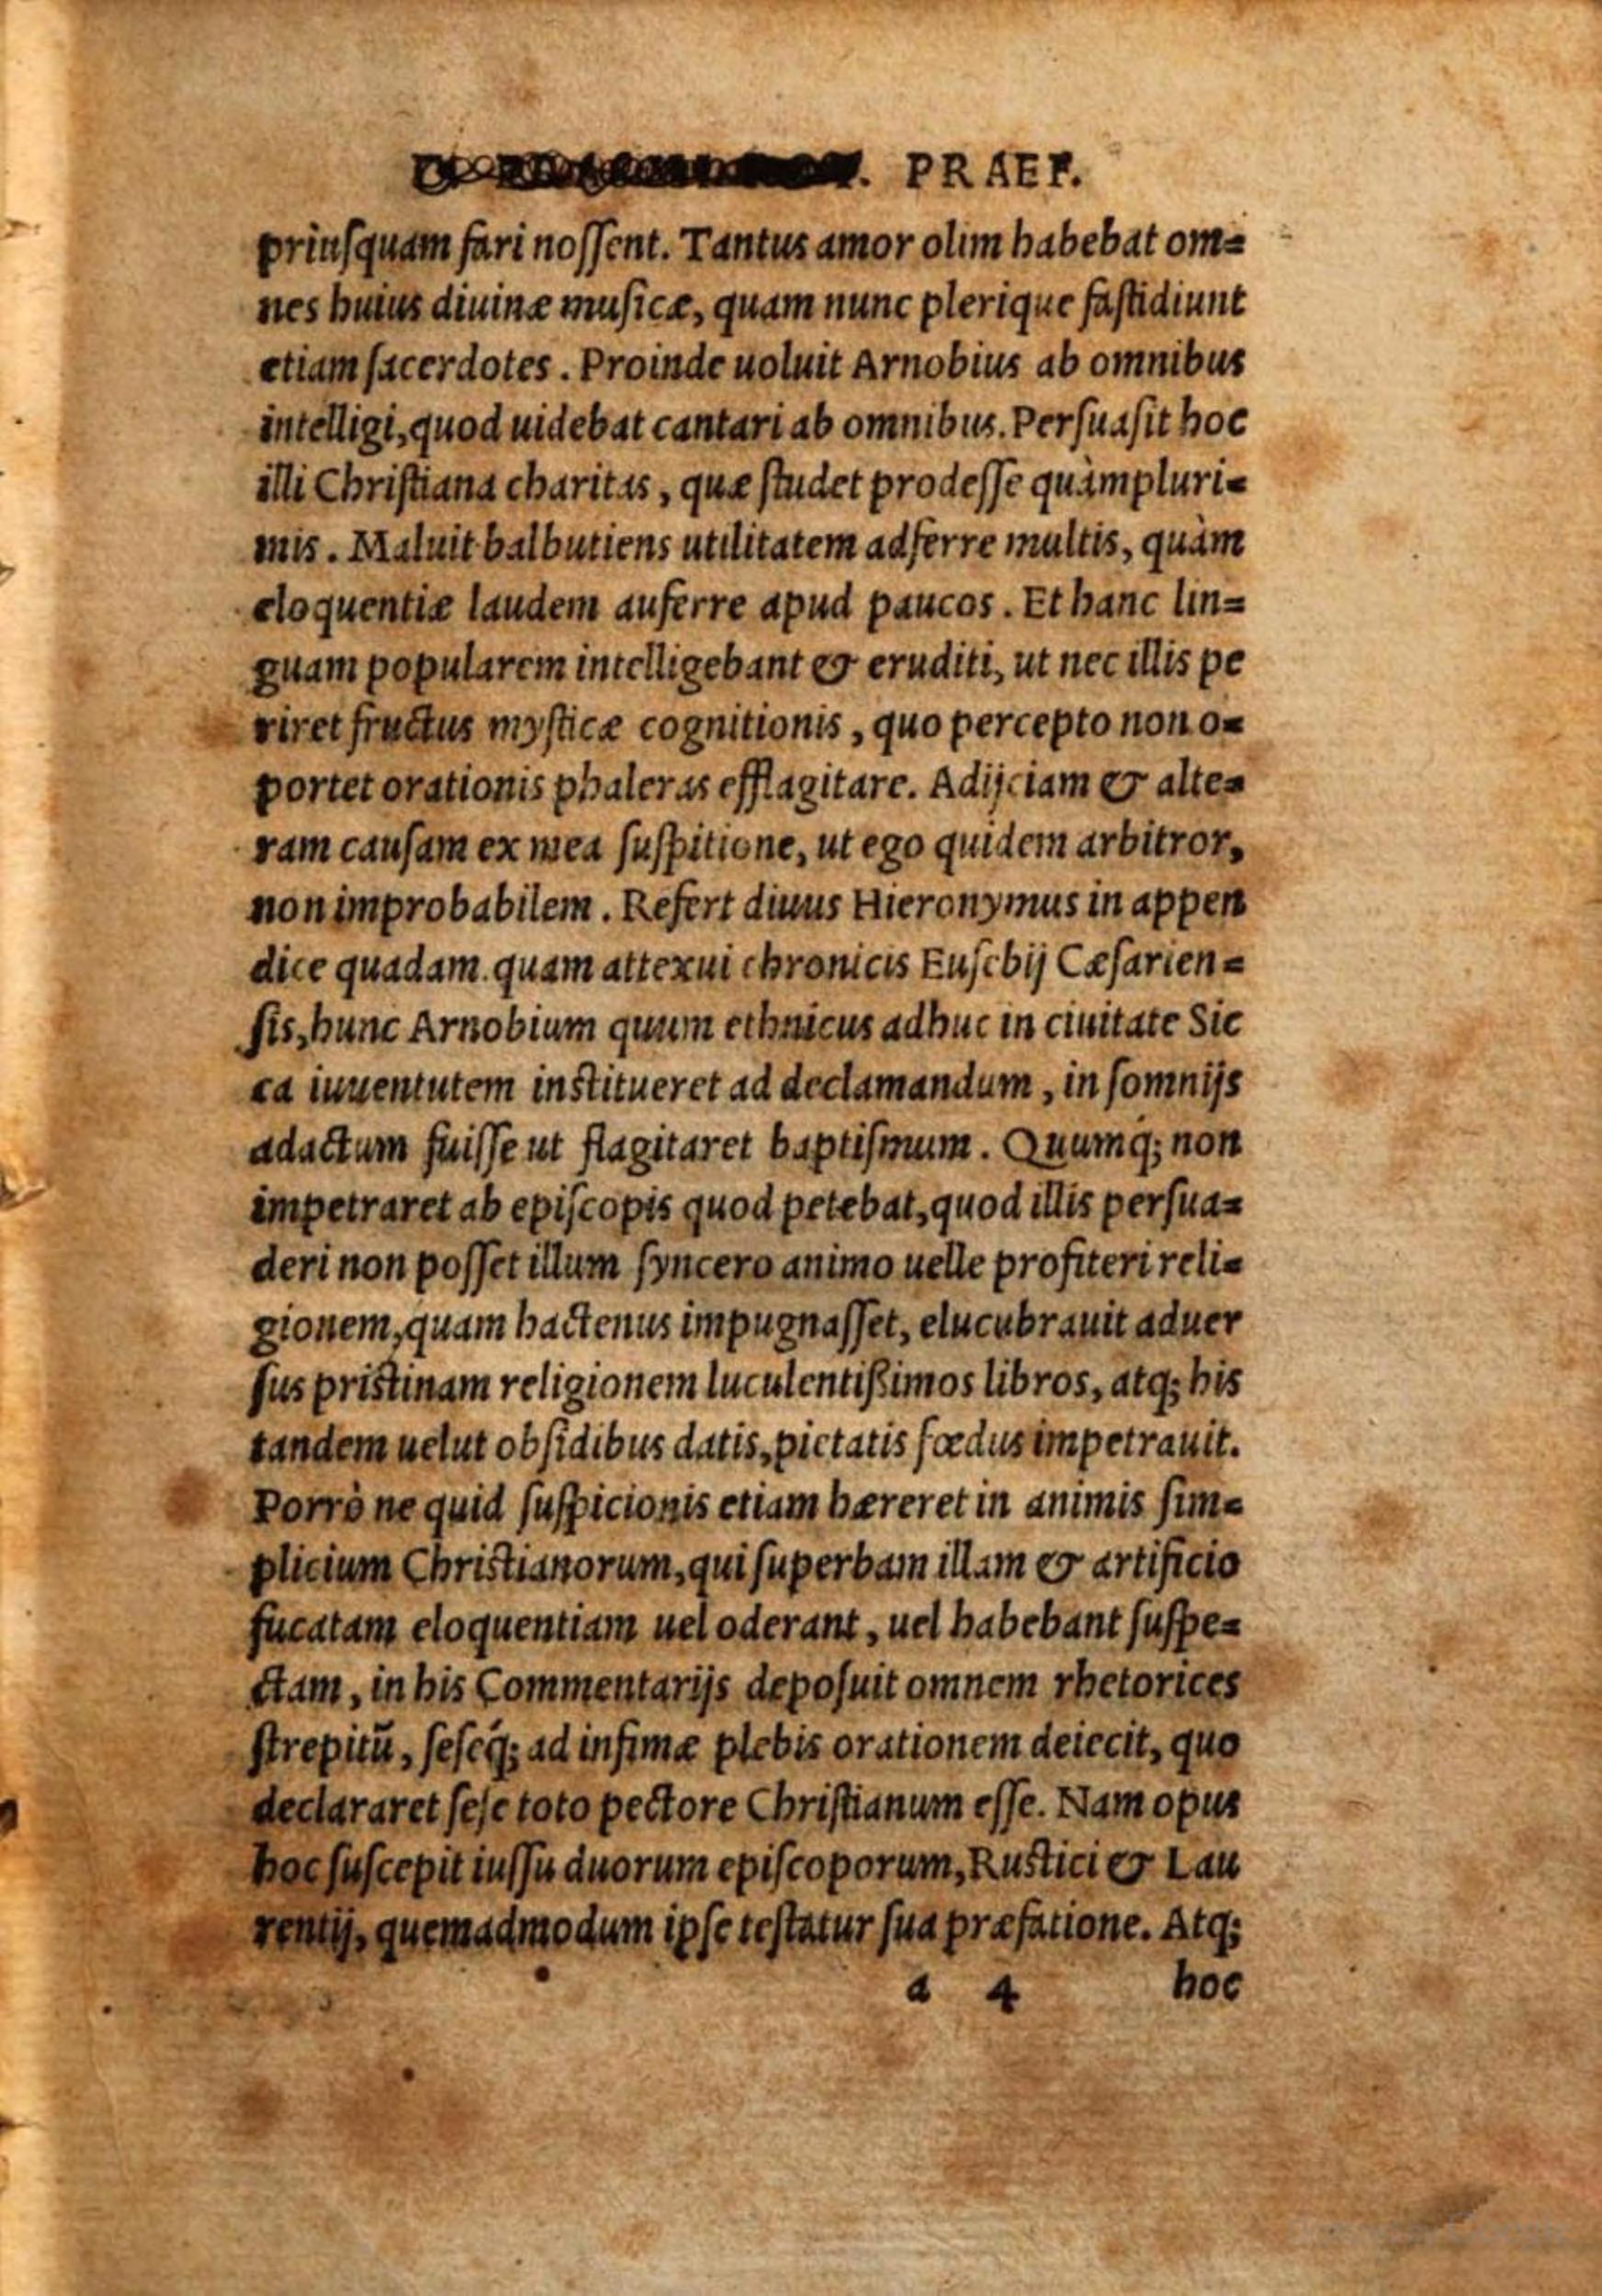 PRAEF.
priusquam fari nossent. Tantus amor olim habebat om=
nes huius diuinæ musicæ, quam nunc plerique fastidiunt
etiam sacerdotes. Proinde uoluit Arnobius ab omnibus
intelligi, quod uidebat cantari ab omnibus. Persuasit hoc
illi Christiana charitas, quæ studet prodesse quàmpluri=
mis. Maluit balbutiens utilitatem adferre multis, quàm
eloquentiæ laudem auferre apud paucos. Et hanc lin=
guam popularem intelligebant & eruditi, ut nec illis pe
riret fructus mysticæ cognitionis, quo percepto non o=
portet orationis phaleras efflagitare. Adijciam & alte=
ram causam ex mea suspitione, ut ego quidem arbitror,
non improbabilem. Refert diuus Hieronymus in appen
dice quadam quam attexui chronicis Eusebij Cæsarien=
sis, hunc Arnobium quum ethnicus adhuc in ciuitate Sic
ca iuuentutem institueret ad declamandum, in somnijs
adactum fuisse ut flagitaret baptismum. Quumq́; non
impetraret ab episcopis quod petebat, quod illis persua=
deri non posset illum syncero animo uelle profiteri reli=
gionem, quam hactenus impugnasset, elucubrauit aduer
sus pristinam religionem luculentißimos libros, atq; his
tandem uelut obsidibus datis, pietatis fœdus impetrauit.
Porrò ne quid suspicionis etiam hæreret in animis sim=
plicium Christianorum, qui superbam illam & artificio
fucatam eloquentiam uel oderant, uel habebant suspe=
ctam, in his Commentarijs deposuit omnem rhetorices
strepitũ, seseq́; ad infimæ plebis orationem deiecit, quo
declararet sese toto pectore Christianum esse. Nam opus
hoc suscepit iussu duorum episcoporum, Rustici & Lau
rentij, quemadmodum ipse testatur sua præfatione. Atq;
a 4 hoc